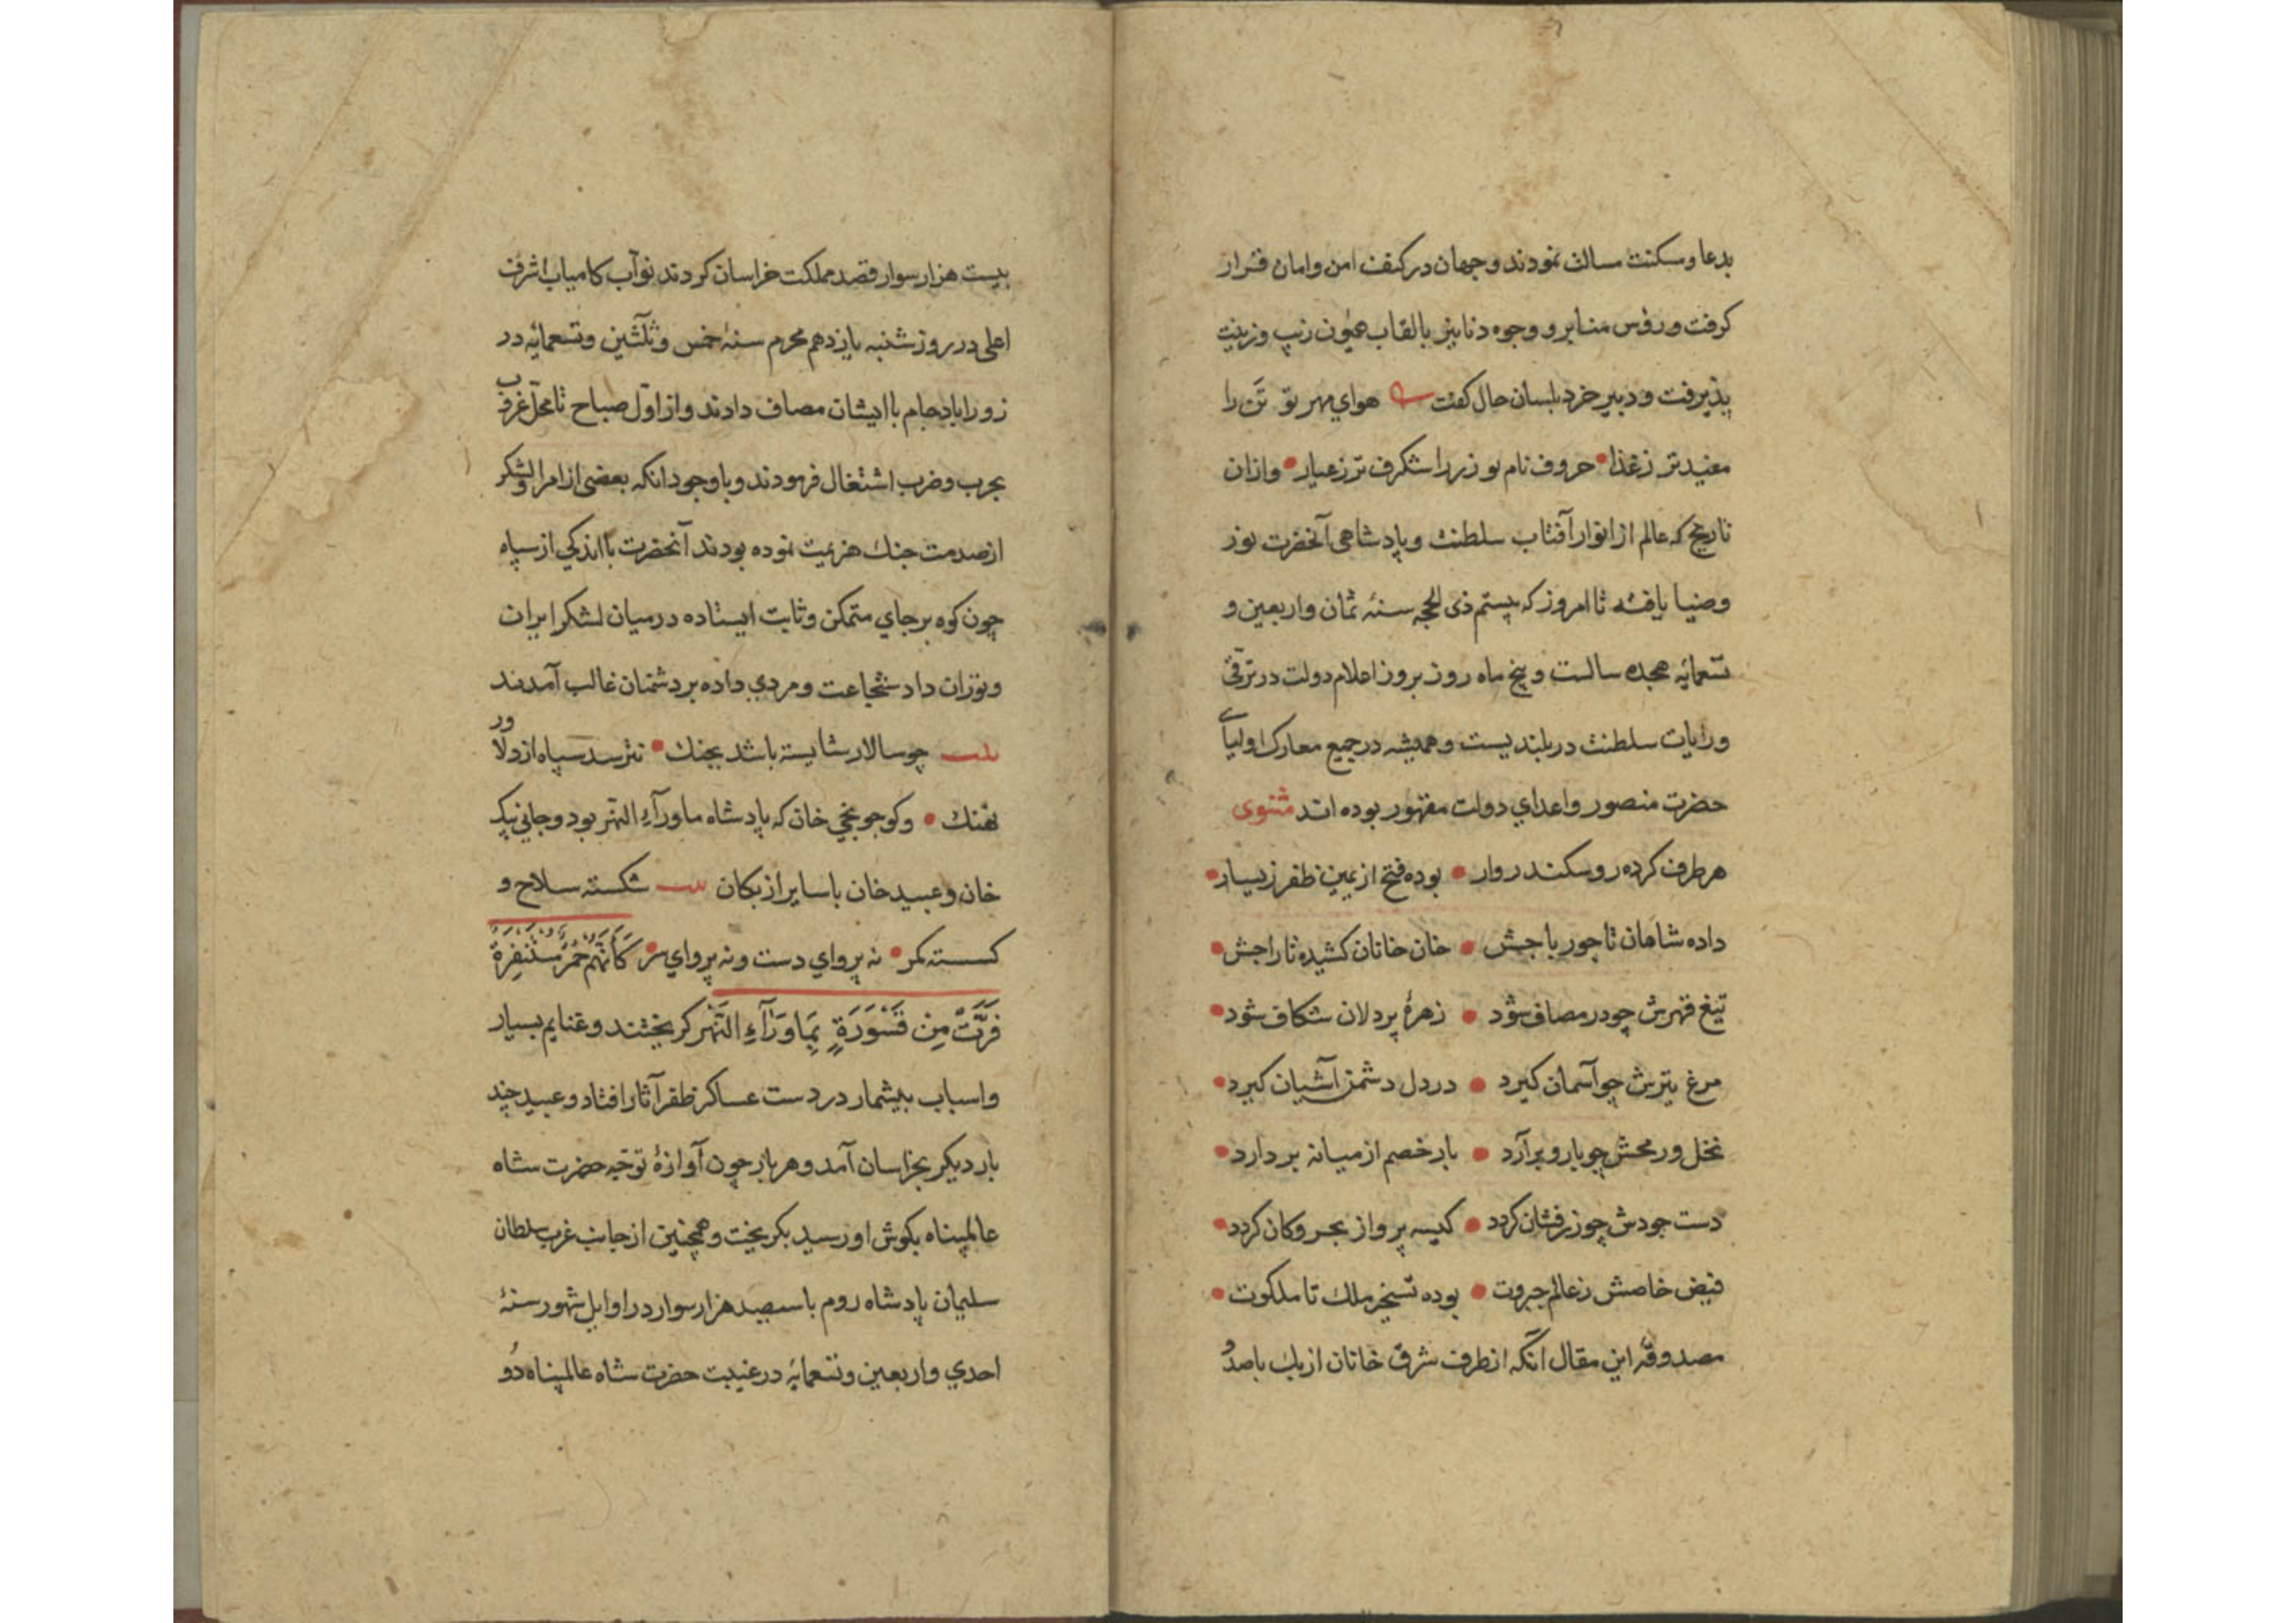 بدعا وسکنت مسالت نمودند وجهان در کنف امن وامان قرار
کرفت ورؤس منابر و وجوه دنانیر بالقاب همیون زیب وزینت
پذیرفت و دبیر خرد بلسان حال کفت هوای مهر تو تن را
مفیدتر زغذا حروف نام تو زر را شکرف تر زعیار وازان
تاریخ که عالم از انوار آفتاب سلطنت وپادشاهی آنحضرت نور
وضیا یافته تا امروز که بیستم ذی الحجه سنۀ ثمان واربعین و
تسعمائه هجده سالست و پنج ماه روز بروز اعلام دولت در ترقی
ورایات سلطنت در بلندیست و همیشه در جمیع معارک اولیآی
حضرت منصور واعدای دولت مقهور بوده اند مثنوی
هر طرف کرده رو سکندروار بوده فتح از یمین ظفر زیسار
داده شاهان تاجور باجش خان خانان کشیده تاراجش
تیغ قهرش چو در مصاف شود زهرۀ پردلان شکاف شود
مرغ تیرش چو آسمان کیرد در دل دشمن آشیان کیرد
نخل ورمحش چو بار و برآرد بار خصم از میانه بردارد
دست جودش چو زرفشان کردد کیسه پرواز بحر وکان کردد
فیض خاصش زعالم جبروت بوده تسخیر ملک تا ملکوت
مصدوقه این مقال آنکه از طرف شرق خانان ازبک باصد و
بیست هزار سوار قصد مملکت خراسان کردند نوآب کامیاب اشرف
اعلی در روز شنبه یازدهم محرم سنۀ خمس وثلثین وتسعمائه در
زورآباد جام با ایشان مصاف دادند واز اول صباح تا محل غروب
بحرب وضرب اشتغال فرمودند وبا وجود انکه بعضی از امرا ولشکر
از صدمت جنک هزیمت نموده بودند آنحضرت با اندکی از سپاه
چون کوه بر جای متمکن وثابت ایستاده در میان لشکر ایران
وتوران داد شجاعت ومردی داده بر دشمنان غالب آمدند
بیت چو سالار شایسته باشد بجنک نترسد سپاه از دلاور
نهنک وکوجونجی خان که پادشاه ماورآء النهر بود وجانی بیک
خان وعبید خان با سایر ازبکان بیت شکسته سلاح و
کسسته کمر نه پروای دست ونه پروای سر کَأَنَّهُمْ حُمُرٌ مُسْتَنْفِرَةٌ
فَرَّتْ مِن قَسْوَرَةٍ بِمَاوَرَآءِ النَّهْر کریختند وغنایم بسیار
واسباب بیشمار در دست عساکر ظفرآثار افتاد وعبید چند
بار دیکر بخراسان آمد وهر بار چون آوازۀ توجه حضرت شاه
عالمپناه بکوش او رسید بکریخت وهمچنین از جانب غرب سلطان
سلیمان پادشاه روم با سیصد هزار سوار در اوایل شهور سنۀ
احدی واربعین وتسعمائه در غیبت حضرت شاه عالمپناه دو